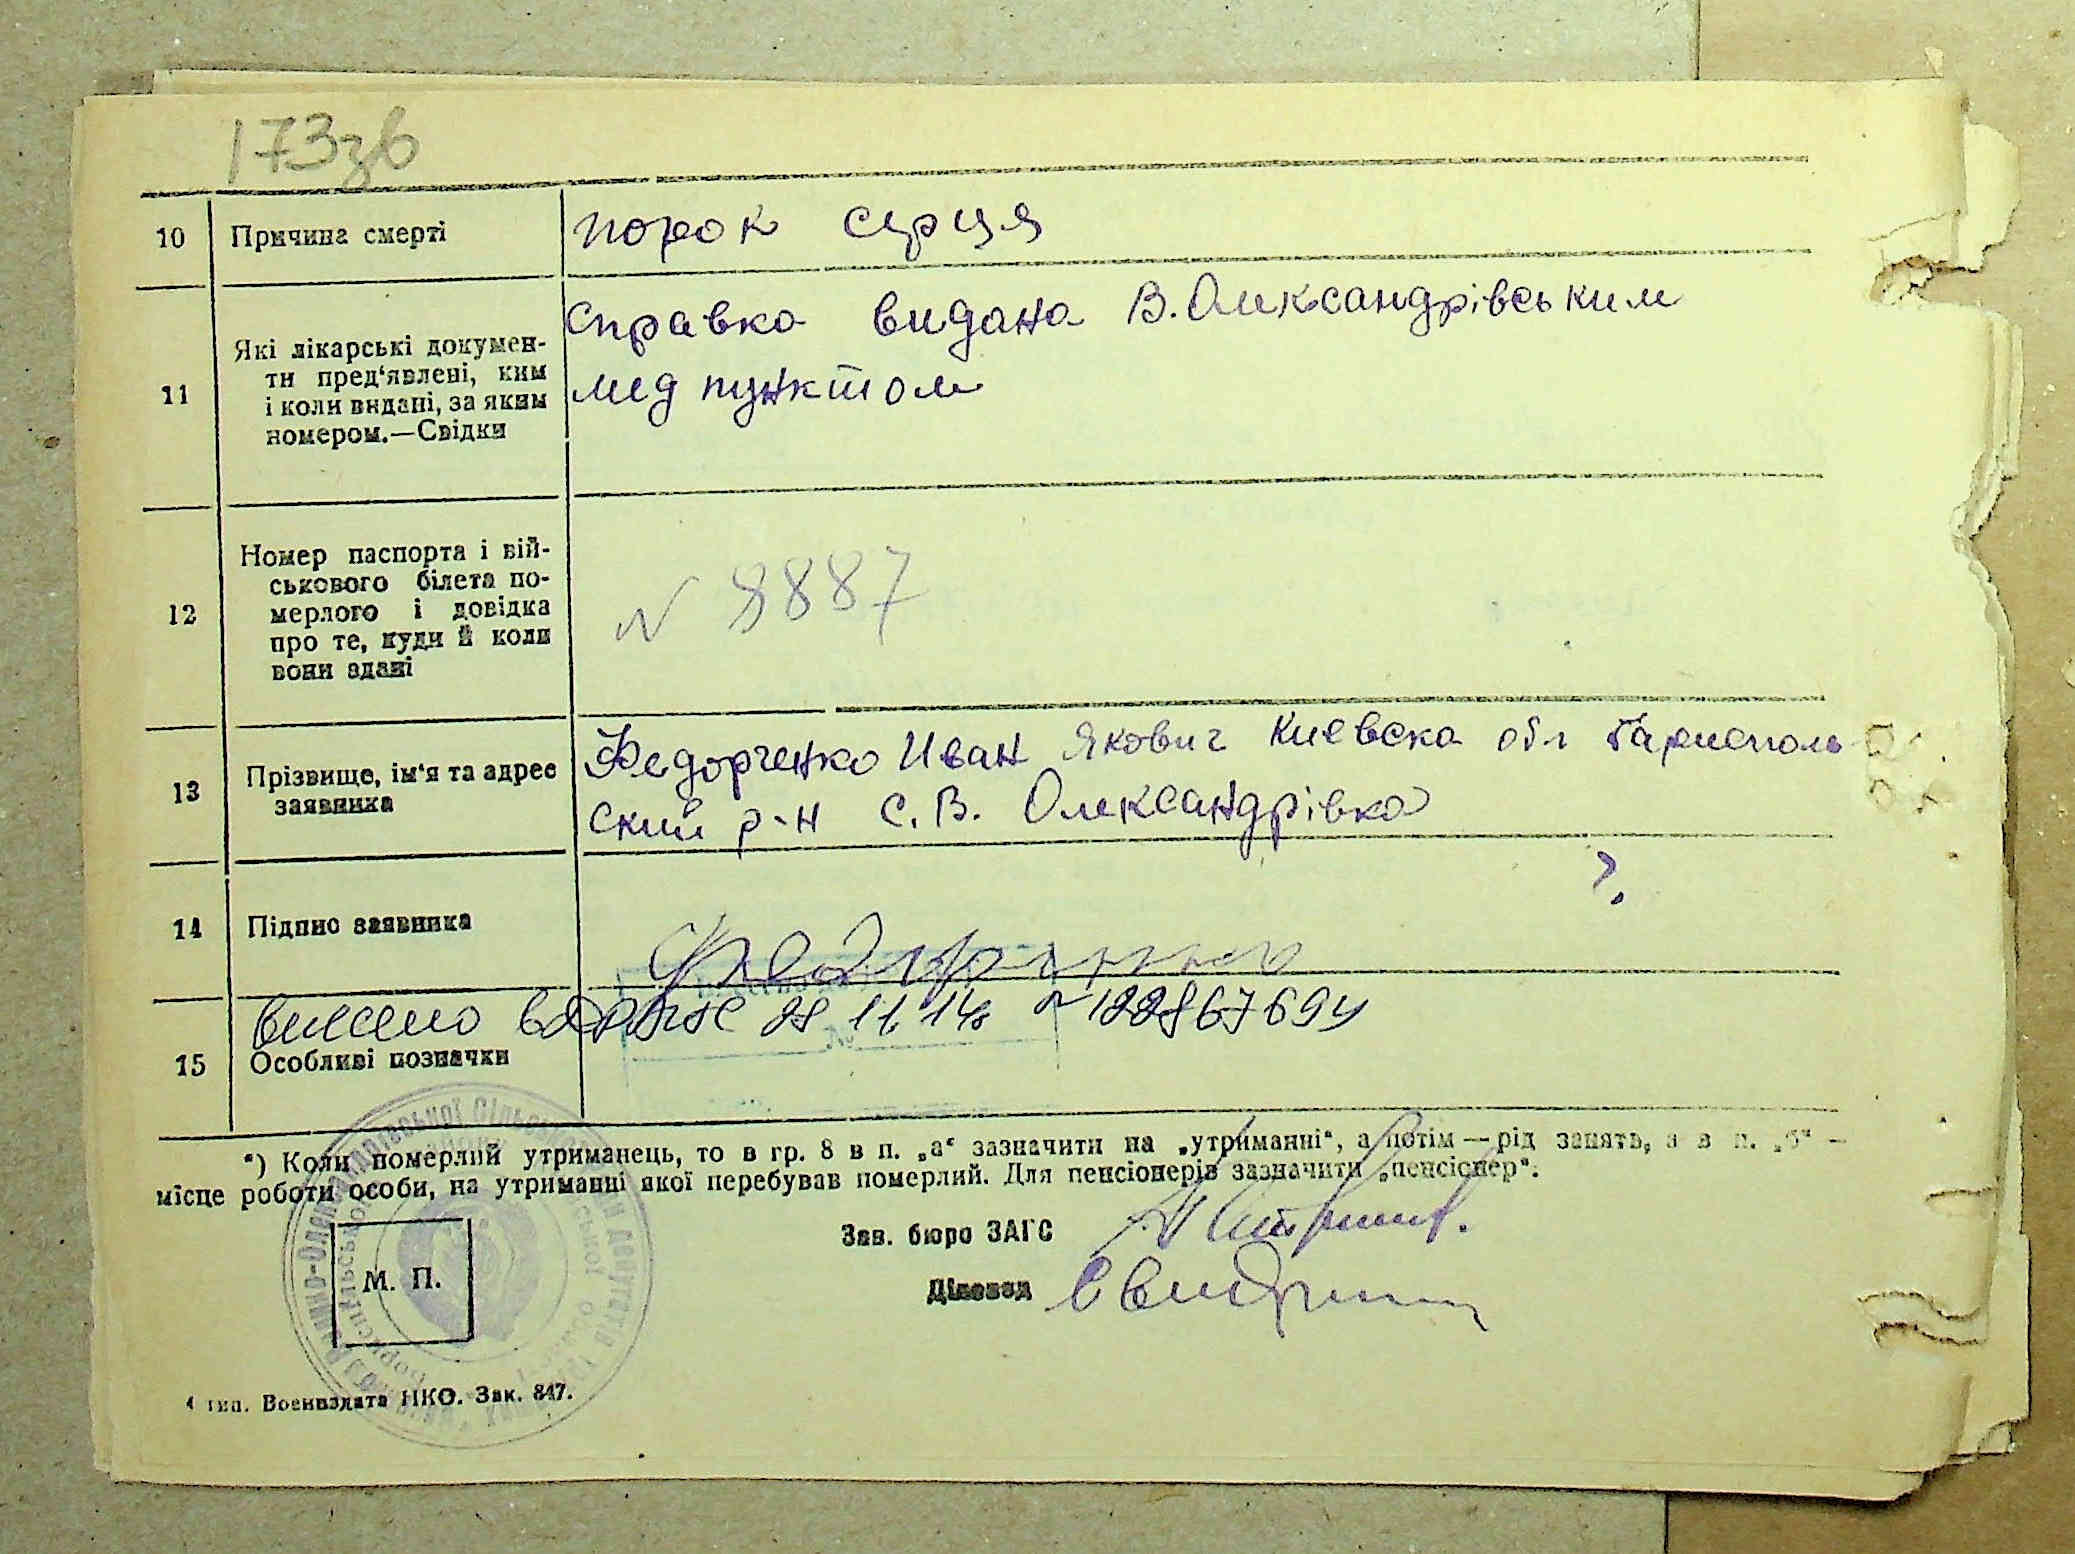 173зв
10 Причина смерті порок серця
11 Які лікарські докумен-
ти пред'явлені, ким
і коли видані, за яким
номером.—Свідки
справка видана В. Олександрівським
мед пунктом
12 Номер паспорта і вій-
ськового білета по-
мерлого і довідка
про те, куди й коли
вони здані
N 8887
13 Прізвище, ім'я та адрес
заявника
Федорченко Иван Якович Киевска обл Барисполь
ский р-н с. В. Олександрівка
?.
14 Підпис заявника
внесено в ДРАЦС 28 11. 14.
15 Особливі позначки
*) Коли померлий утриманець, то в гр. 8 в п. „а“ зазначити на „утриманні“, а потім — рід занять, а в п. „б“ —
місце роботи особи, на утриманні якої перебував померлий. Для пенсіонерів зазначити „пенсіонер“.
Зав. бюро ЗАГС
Діловод
М. П.
4 тип. Воениздата НКО. Зак. 847.